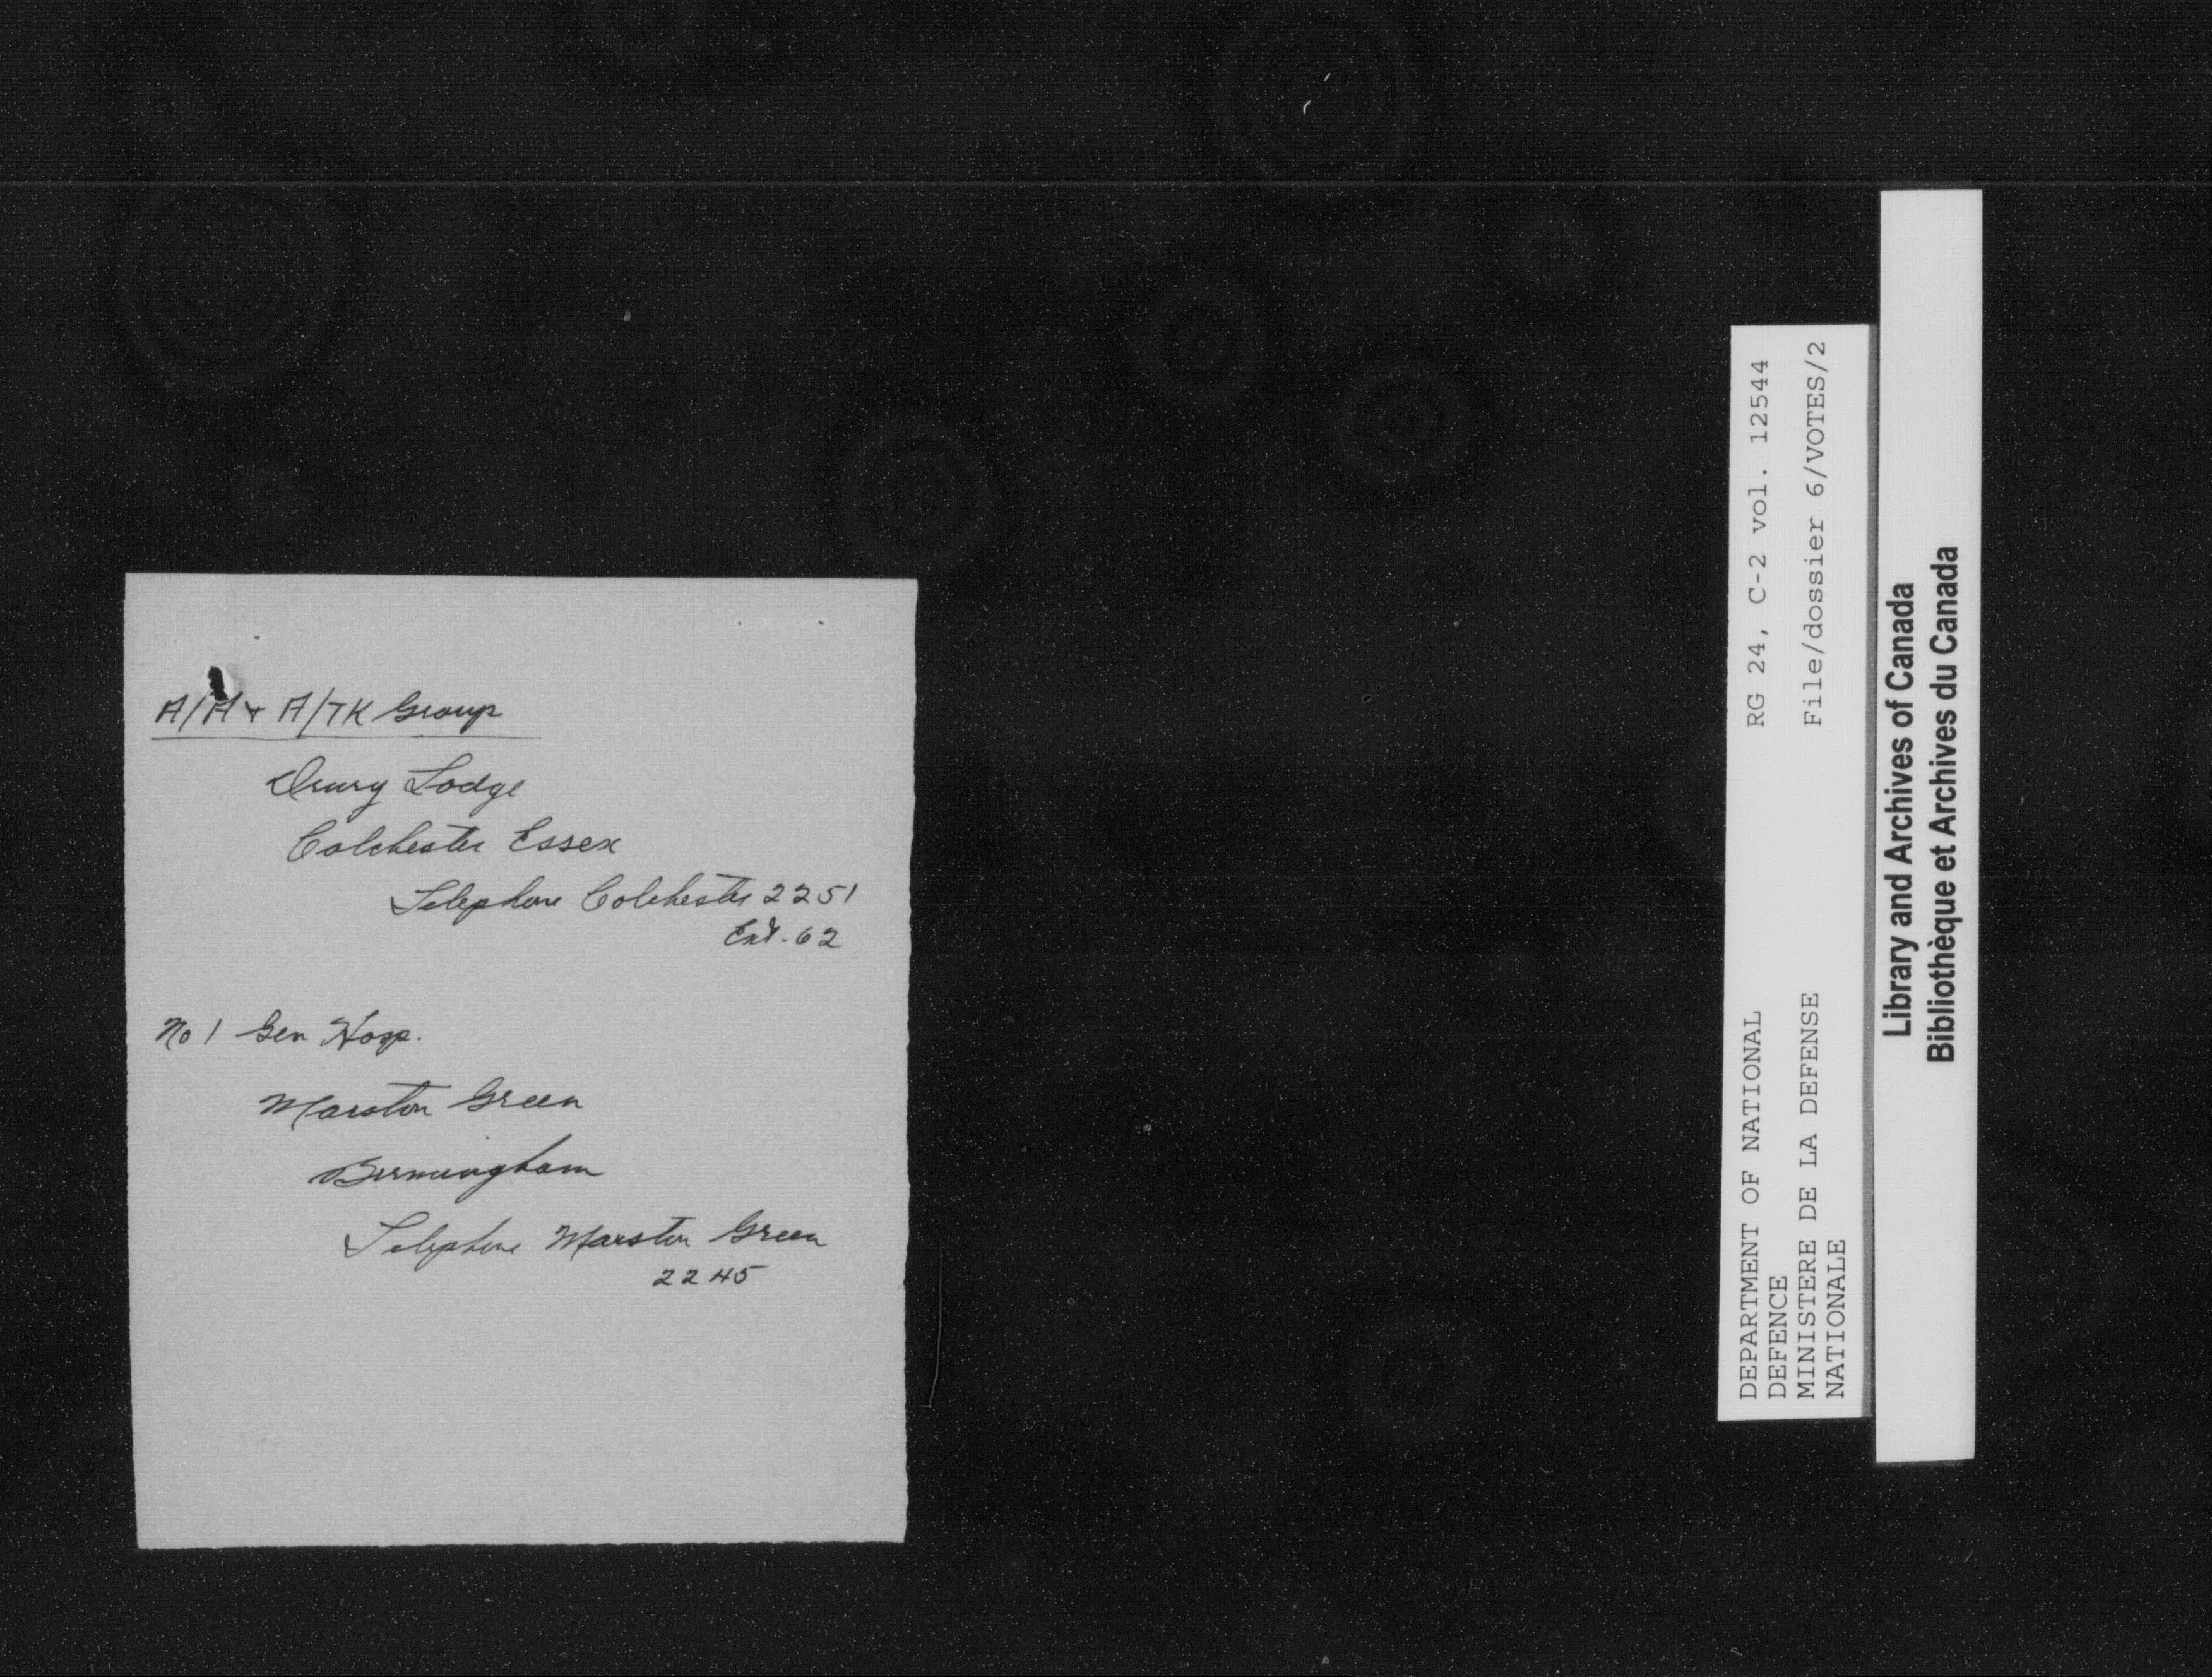 A/A + A/TK Group
Drury Lodge
Colchester Essex
Telephone Colchester 2251
Ext. 62
No 1 Gen Hosp.
Marston Green
Birmingham
Telephone Marston Green
2245
RG 24, C-2 vol. 12544
File/dossier 6/VOTES/2
DEPARTMENT OF NATIONAL
DEFENCE
MINISTERE DE LA DEFENSE
NATIONALE
Library and Archives of Canada
Bibliothèque et Archives du Canada